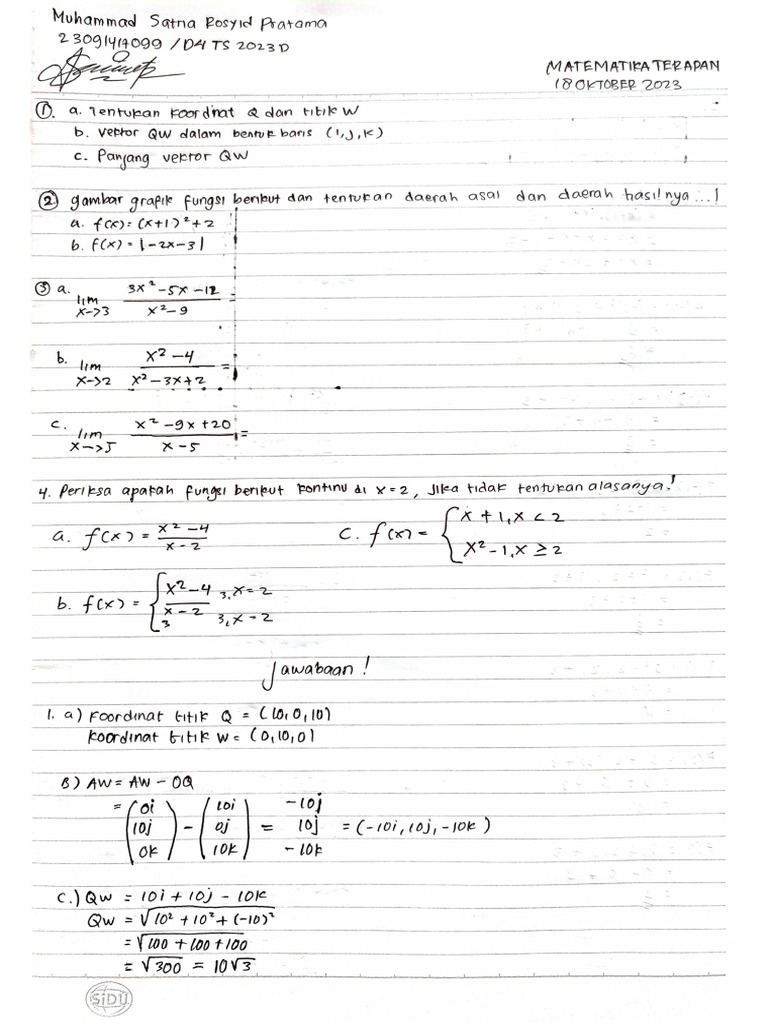 Muhammad Satria Rosyid Pratama
23091417099 / D4 TS 2023 D
MATEMATIKA TERAPAN
18 OKTOBER 2023
1. a. Tentukan koordinat Q dan titik W
b. Vektor QW dalam bentuk baris (i, j, k)
c. Panjang vektor QW
2 gambar grafik fungsi berikut dan tentukan daerah asal dan daerah hasilnya...!
a. f(x) = (x+1)² + 2
b. f(x) = |-2x-3|
3 a. lim x->3 (3x² - 5x - 12)/(x² - 9) =
b. lim x->2 (x² - 4)/(x² - 3x + 2) =
c. lim x->5 (x² - 9x + 20)/(x - 5) =
4. Periksa apakah fungsi berikut kontinu di x = 2, Jika tidak tentukan alasanya!
a. f(x) = (x² - 4)/(x - 2)
c. f(x) = { x + 1, x < 2
x² - 1, x ≥ 2
b. f(x) = { (x² - 4)/(x - 2) 3, x = 2
3 3, x = 2
Jawabaan !
1. a) Koordinat titik Q = (10, 0, 10)
Koordinat titik W = (0, 10, 0)
B) AW = AW - OQ
= (0i 10j 0k) - (10i 0j 10k) = -10j 10j -10k = (-10i, 10j, -10k)
C.) QW = 10i + 10j - 10k
QW = √10² + 10² + (-10)²
= √100 + 100 + 100
= √300 = 10√3
SiDU